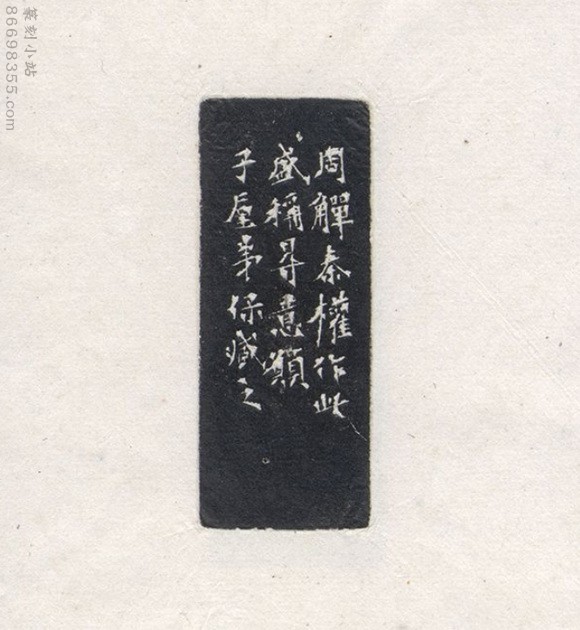 周觶秦權作此
盛稱㝵意願
子屋弟保藏之
篆刻小站
86698355.com